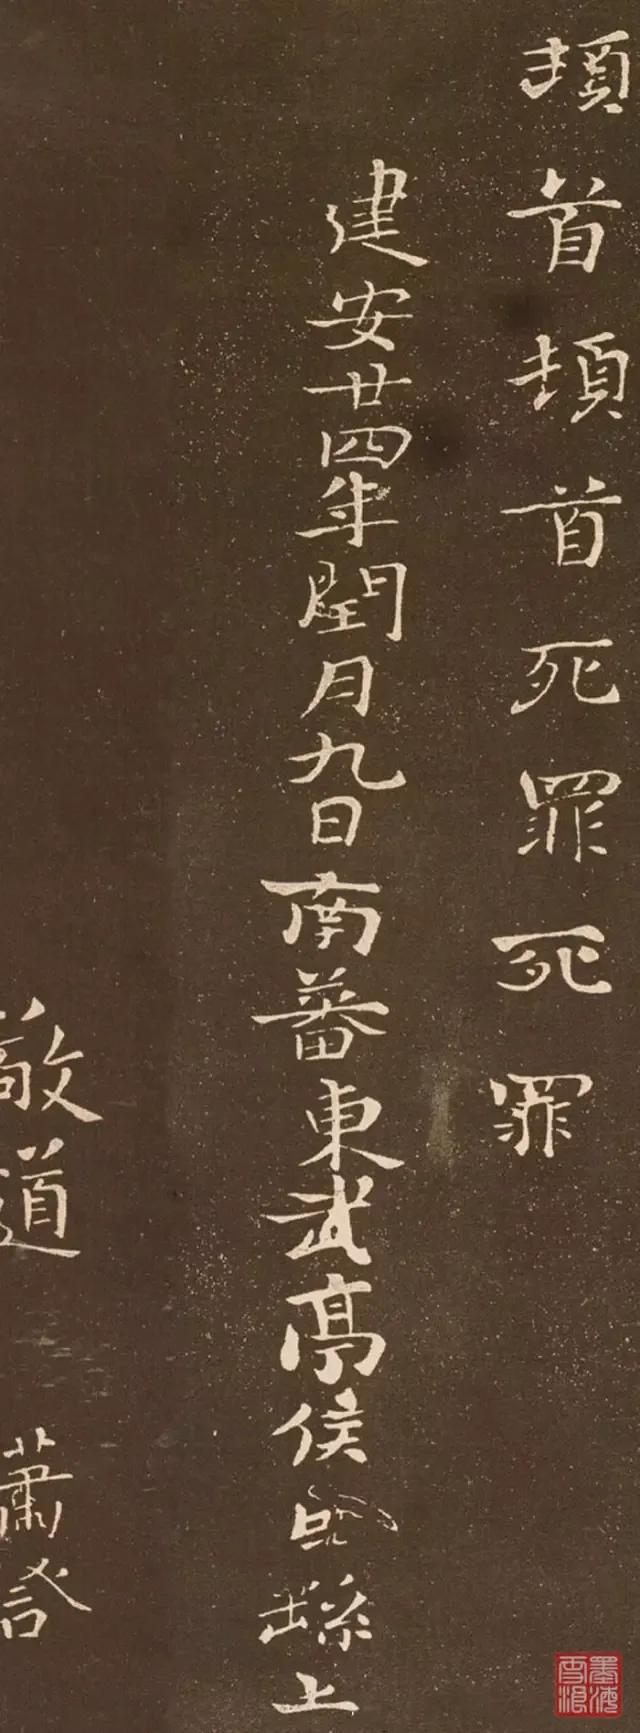 頓首頓首死罪死罪
建安廿四年閏月九日南蕃東武亭侯繇上
道 蕭
墨海